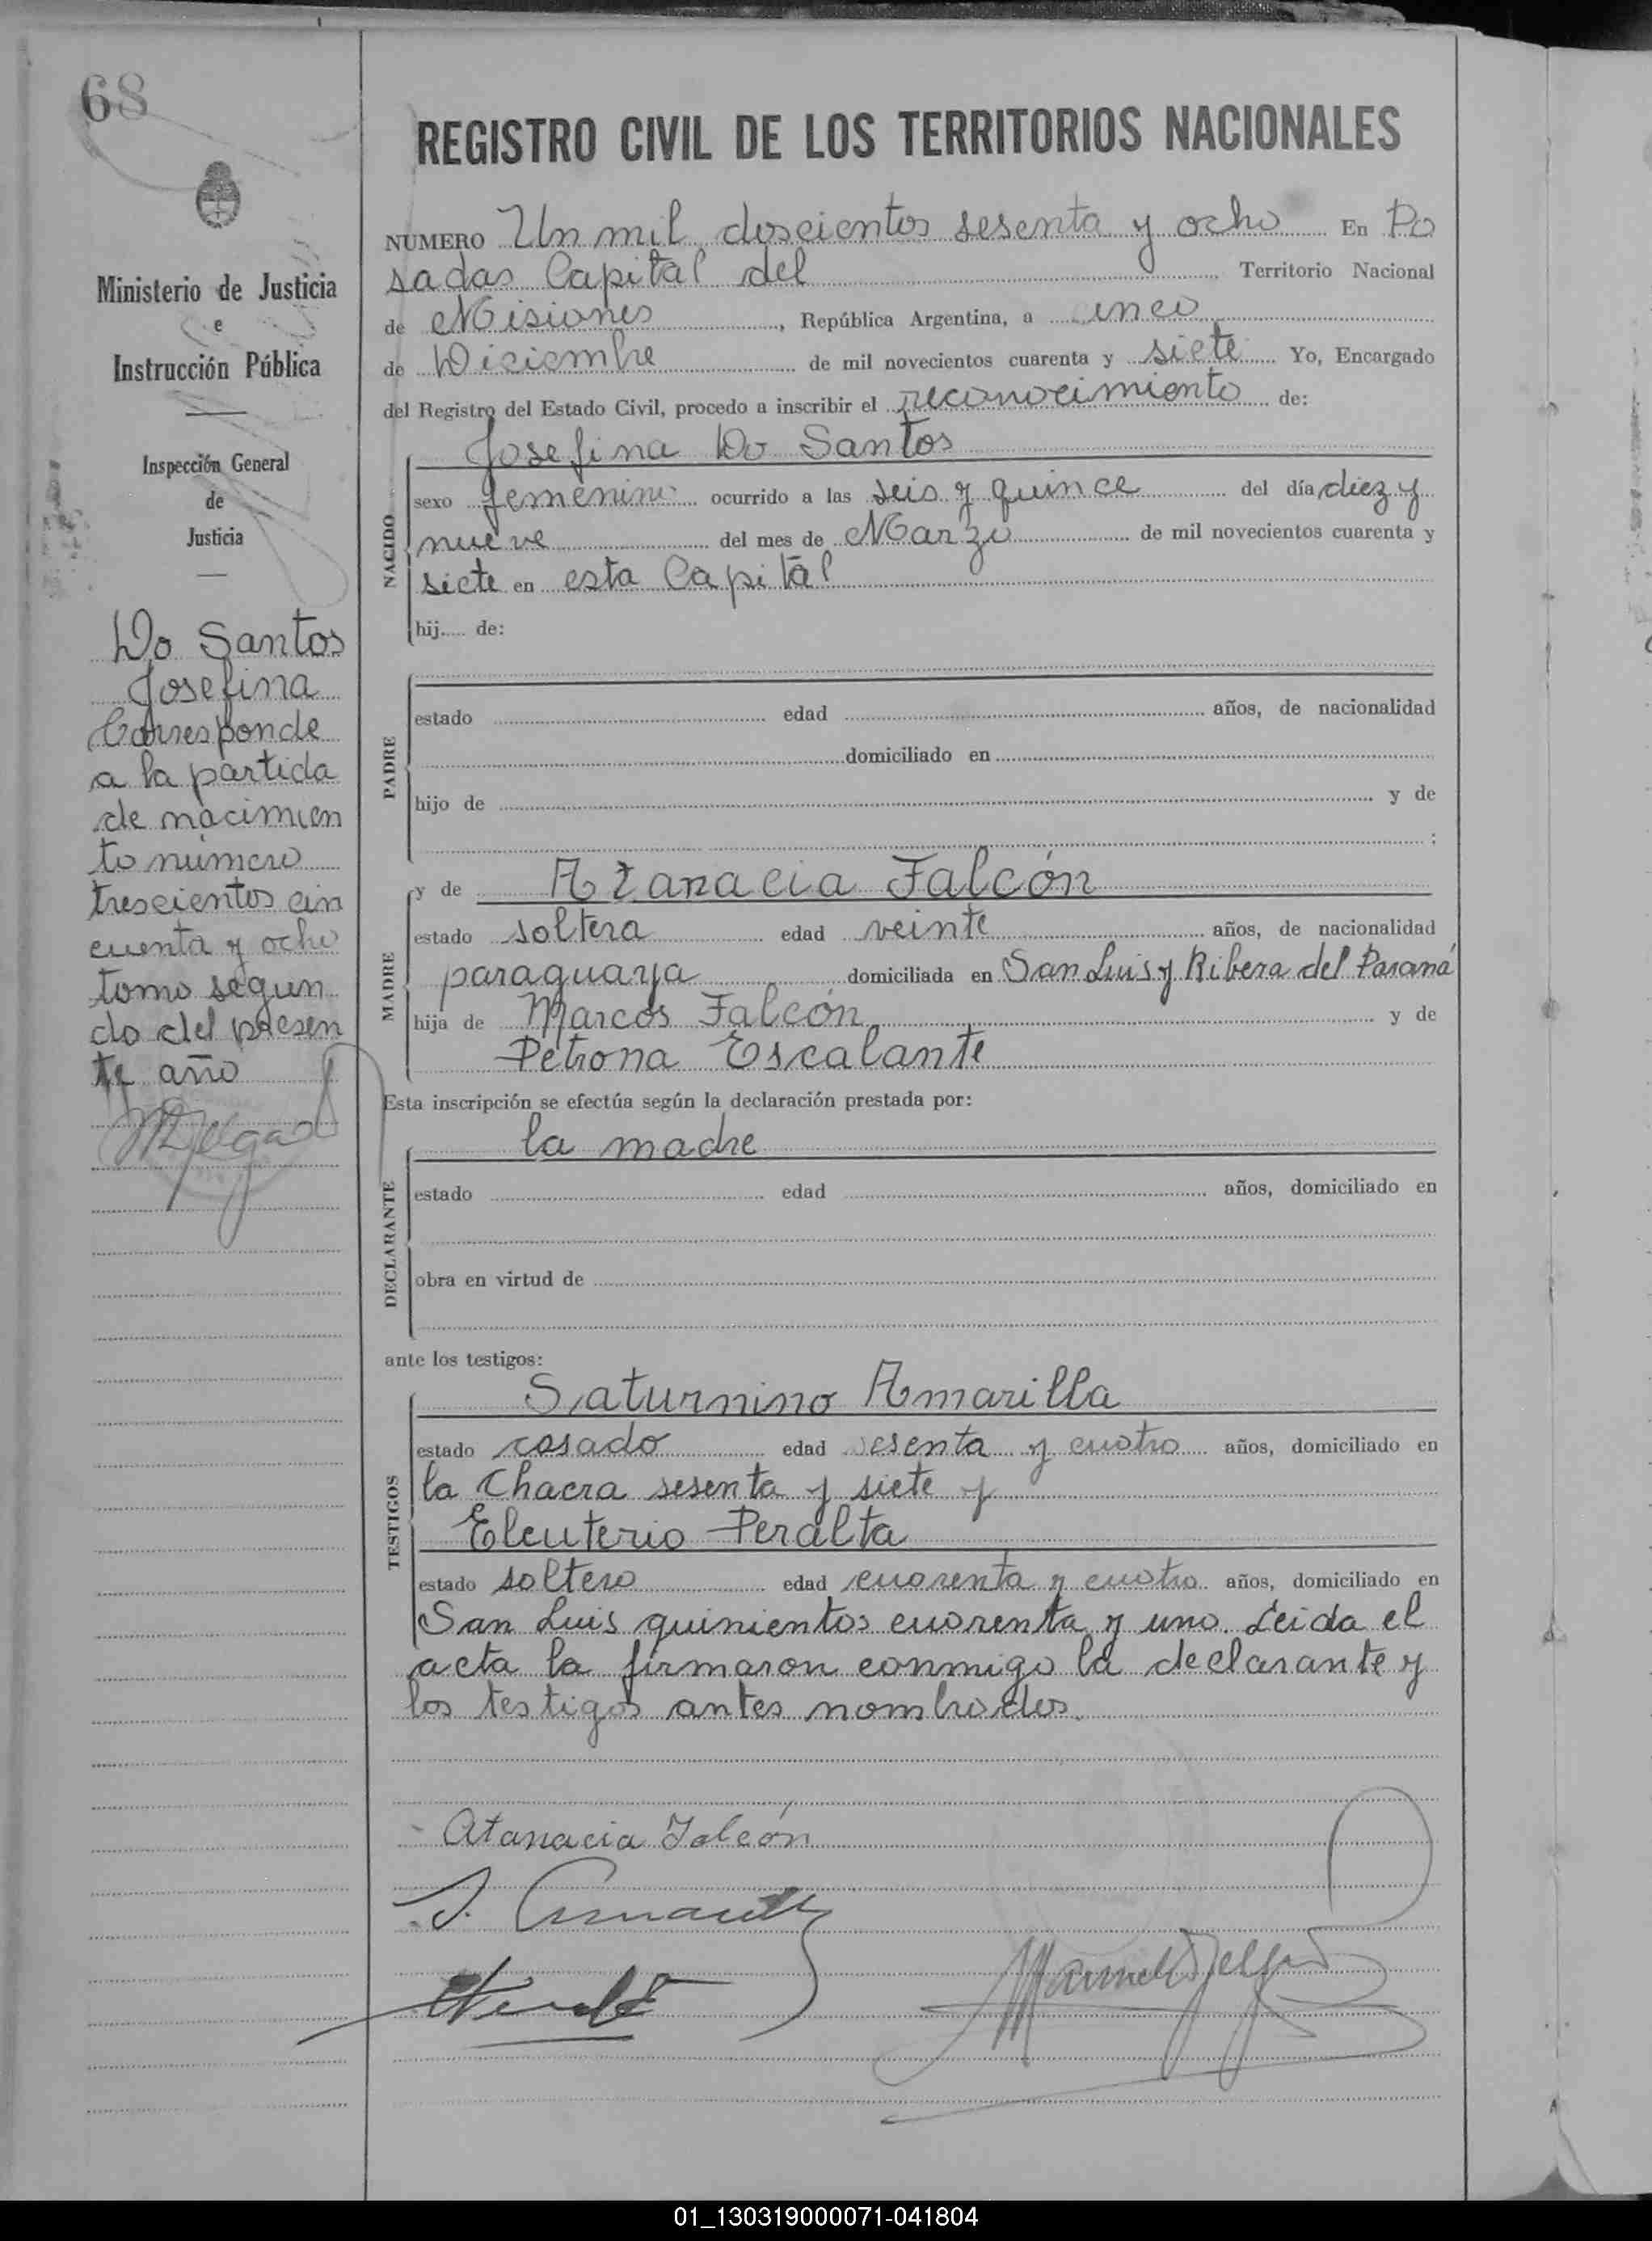 68
Ministerio de Justicia
e
Instrucción Pública
Inspección General
de
Justicia
Do Santos
Josefina
Corresponde
a la partida
de nacimien
to número
trescientos cin
cuenta y ocho
tomo segun
do del presen
te año
REGISTRO CIVIL DE LOS TERRITORIOS NACIONALES
NUMERO Un mil doscientos sesenta y ocho En Po
sadas Capital del Territorio Nacional
de Misiones, República Argentina, a cinco
de Diciembre de mil novecientos cuarenta y siete Yo, Encargado
del Registro del Estado Civil, procedo a inscribir el reconocimiento de:
Josefina Do Santos
NACIDO
sexo femenino ocurrido a las seis y quince del día diez y
nueve del mes de Marzo de mil novecientos cuarenta y
siete en esta Capital
hij..... de:
PADRE
estado edad años, de nacionalidad
domiciliado en
hijo de y de
;
MADRE
y de Atanacia Falcón
estado soltera edad veinte años, de nacionalidad
paraguaya domiciliada en San Luis y Ribera del Paraná
hija de Marcos Falcón y de
Petrona Escalante
Esta inscripción se efectúa según la declaración prestada por:
la madre
DECLARANTE
estado edad años, domiciliado en
obra en virtud de
ante los testigos:
TESTIGOS
Saturnino Amarilla
estado casado edad sesenta y cuatro años, domiciliado en
la Chacra sesenta y siete y
Eleuterio Peralta
estado soltero edad cuarenta y cuatro años, domiciliado en
San Luis quinientos cuarenta y uno. Leida el
acta la firmaron conmigo la declarante y
los testigos antes nombrados.
Atanacia Falcón
01_130319000071-041804